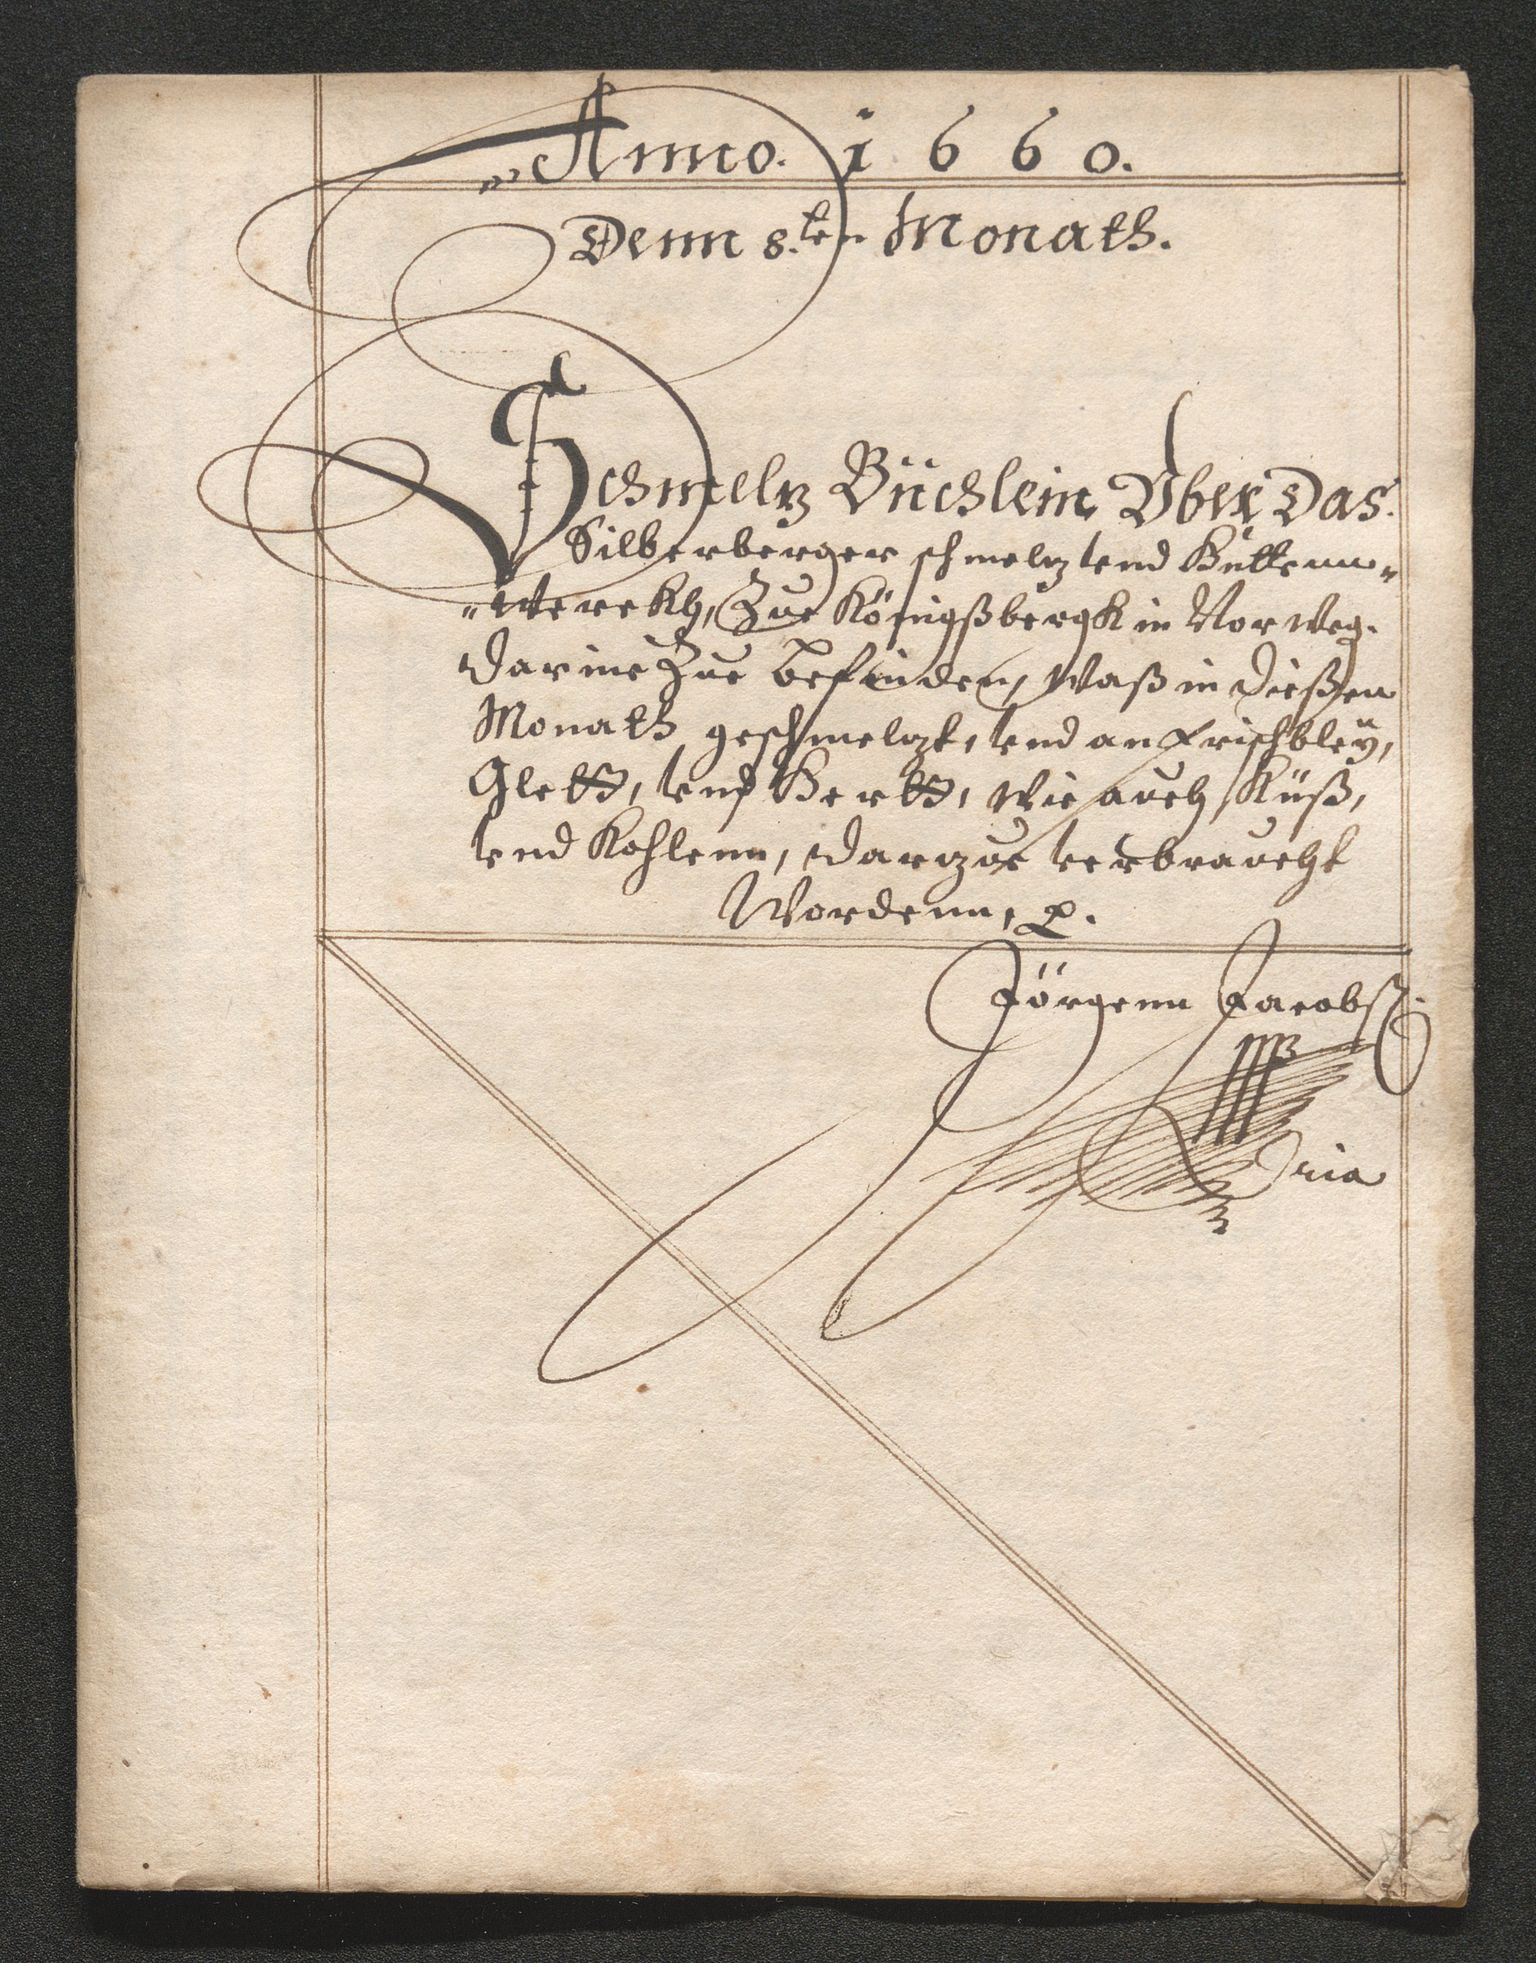 Anno. 1660.
Denn 8.ten Monath.
Schmeltz Büchlein Vber Das.
Silberberger schmeltz vnd Hüttenn„
„Werckh, Zue Königßbergk in Norweg.
Darine Zue befinden, Waß in dießen
Monath geschmeltzt, vnd an frischbleÿ,
Glett, vnd Hertt, Wie auch Küß,
vnd Kohlenn, Dartzue verbraucht
Wordenn,
Jörgenn Jacobß.
mpp
ria